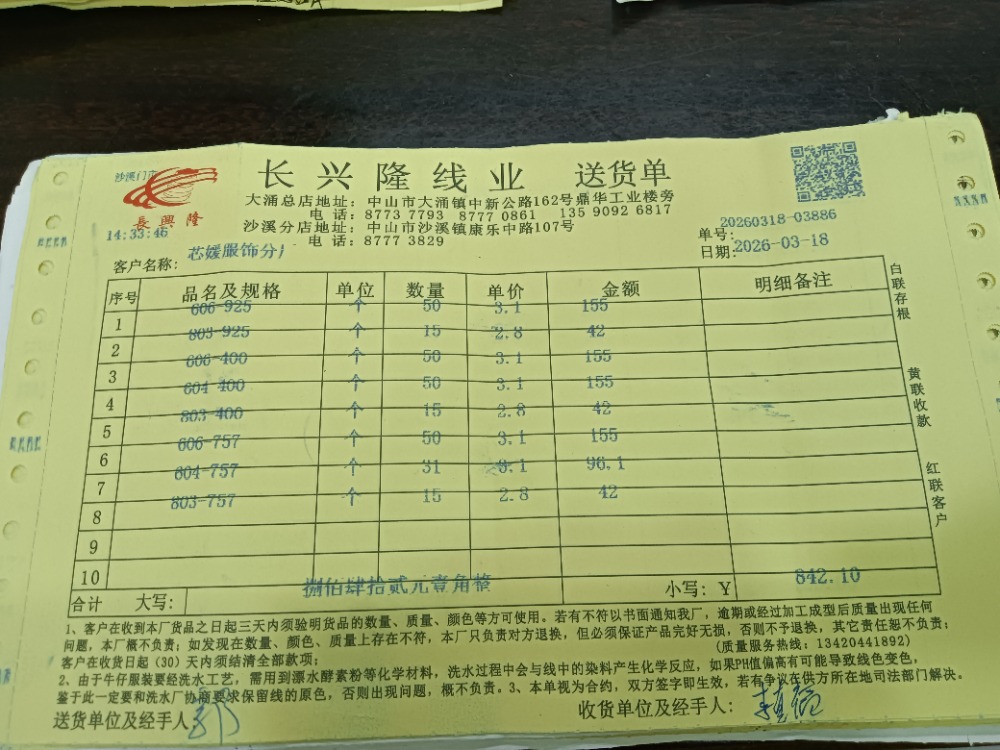 沙溪门市
長興隆
14:33:46
长兴隆线业 送货单
大涌总店地址：中山市大涌镇中新公路162号鼎华工业楼旁
电话：8773 7793 8777 0861 135 9092 6817
沙溪分店地址：中山市沙溪镇康乐中路107号
电话：8777 3829
单号：20260318-03886
日期：2026-03-18
客户名称：芯媛服饰分厂
序号 品名及规格 单位 数量 单价 金额 明细备注
1 606-925 个 50 3.1 155
2 803-925 个 15 2.8 42
3 606-400 个 50 3.1 155
4 604-400 个 50 3.1 155
5 803-400 个 15 2.8 42
6 606-757 个 50 3.1 155
7 604-757 个 31 3.1 96.1
8 803-757 个 15 2.8 42
9
10
合计 大写：捌佰肆拾贰元壹角整 小写：Y 842.10
白联存根
黄联收款
红联客户
1、客户在收到本厂货品之日起三天内须验明货品的数量、质量、颜色等方可使用。若有不符以书面通知我厂，逾期或经过加工成型后质量出现任何
问题，本厂概不负责；如发现在数量、颜色、质量上存在不符，本厂只负责对方退换，但必须保证产品完好无损，否则不予退换，其它责任恕不负责；
客户在收货日起（30）天内须结清全部款项；
(质量服务热线：13420441892)
2、由于牛仔服装要经洗水工艺，需用到漂水酵素粉等化学材料，洗水过程中会与线中的染料产生化学反应，如果PH值偏高有可能导致线色变色，
鉴于此一定要和洗水厂协商要求保留线的原色，否则出现问题，概不负责。3、本单视为合约，双方签字即生效，若有争议在供方所在地司法部门解决。
送货单位及经手人
收货单位及经手人：